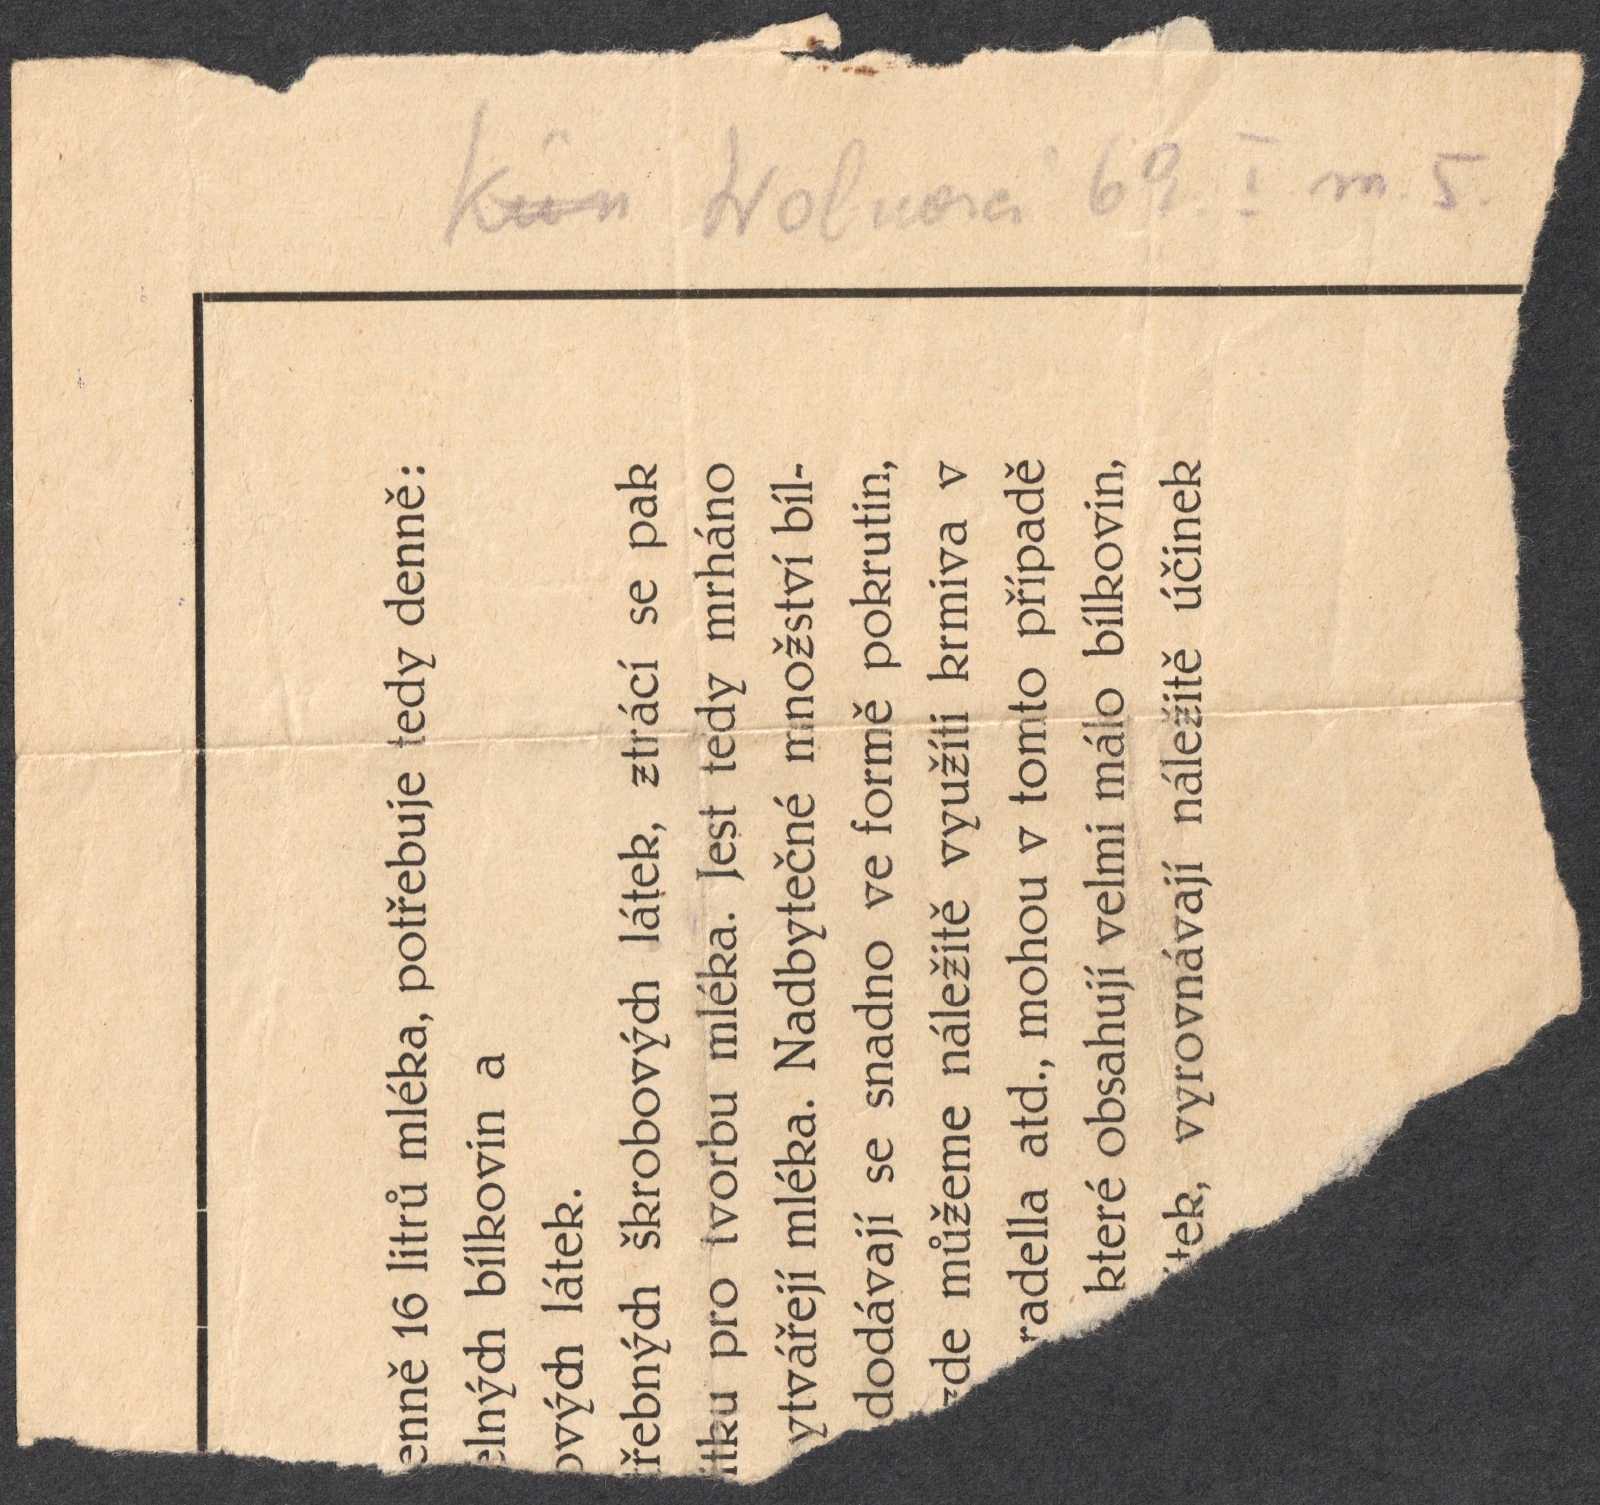 Wolnera 69. I m. 5.
enně 16 litrů mléka, potřebuje tedy denně:
elných bílkovin a
ových látek.
řebných škrobových látek, ztrácí se pak
itku pro tvorbu mléka. Jest tedy mrháno
ytvářejí mléka. Nadbytečné množství bíl-
dodávají se snadno ve formě pokrutin,
zde můžeme náležitě využíti krmiva v
radella atd., mohou v tomto případě
které obsahují velmi málo bílkovin,
tek, vyrovnávají náležitě účinek